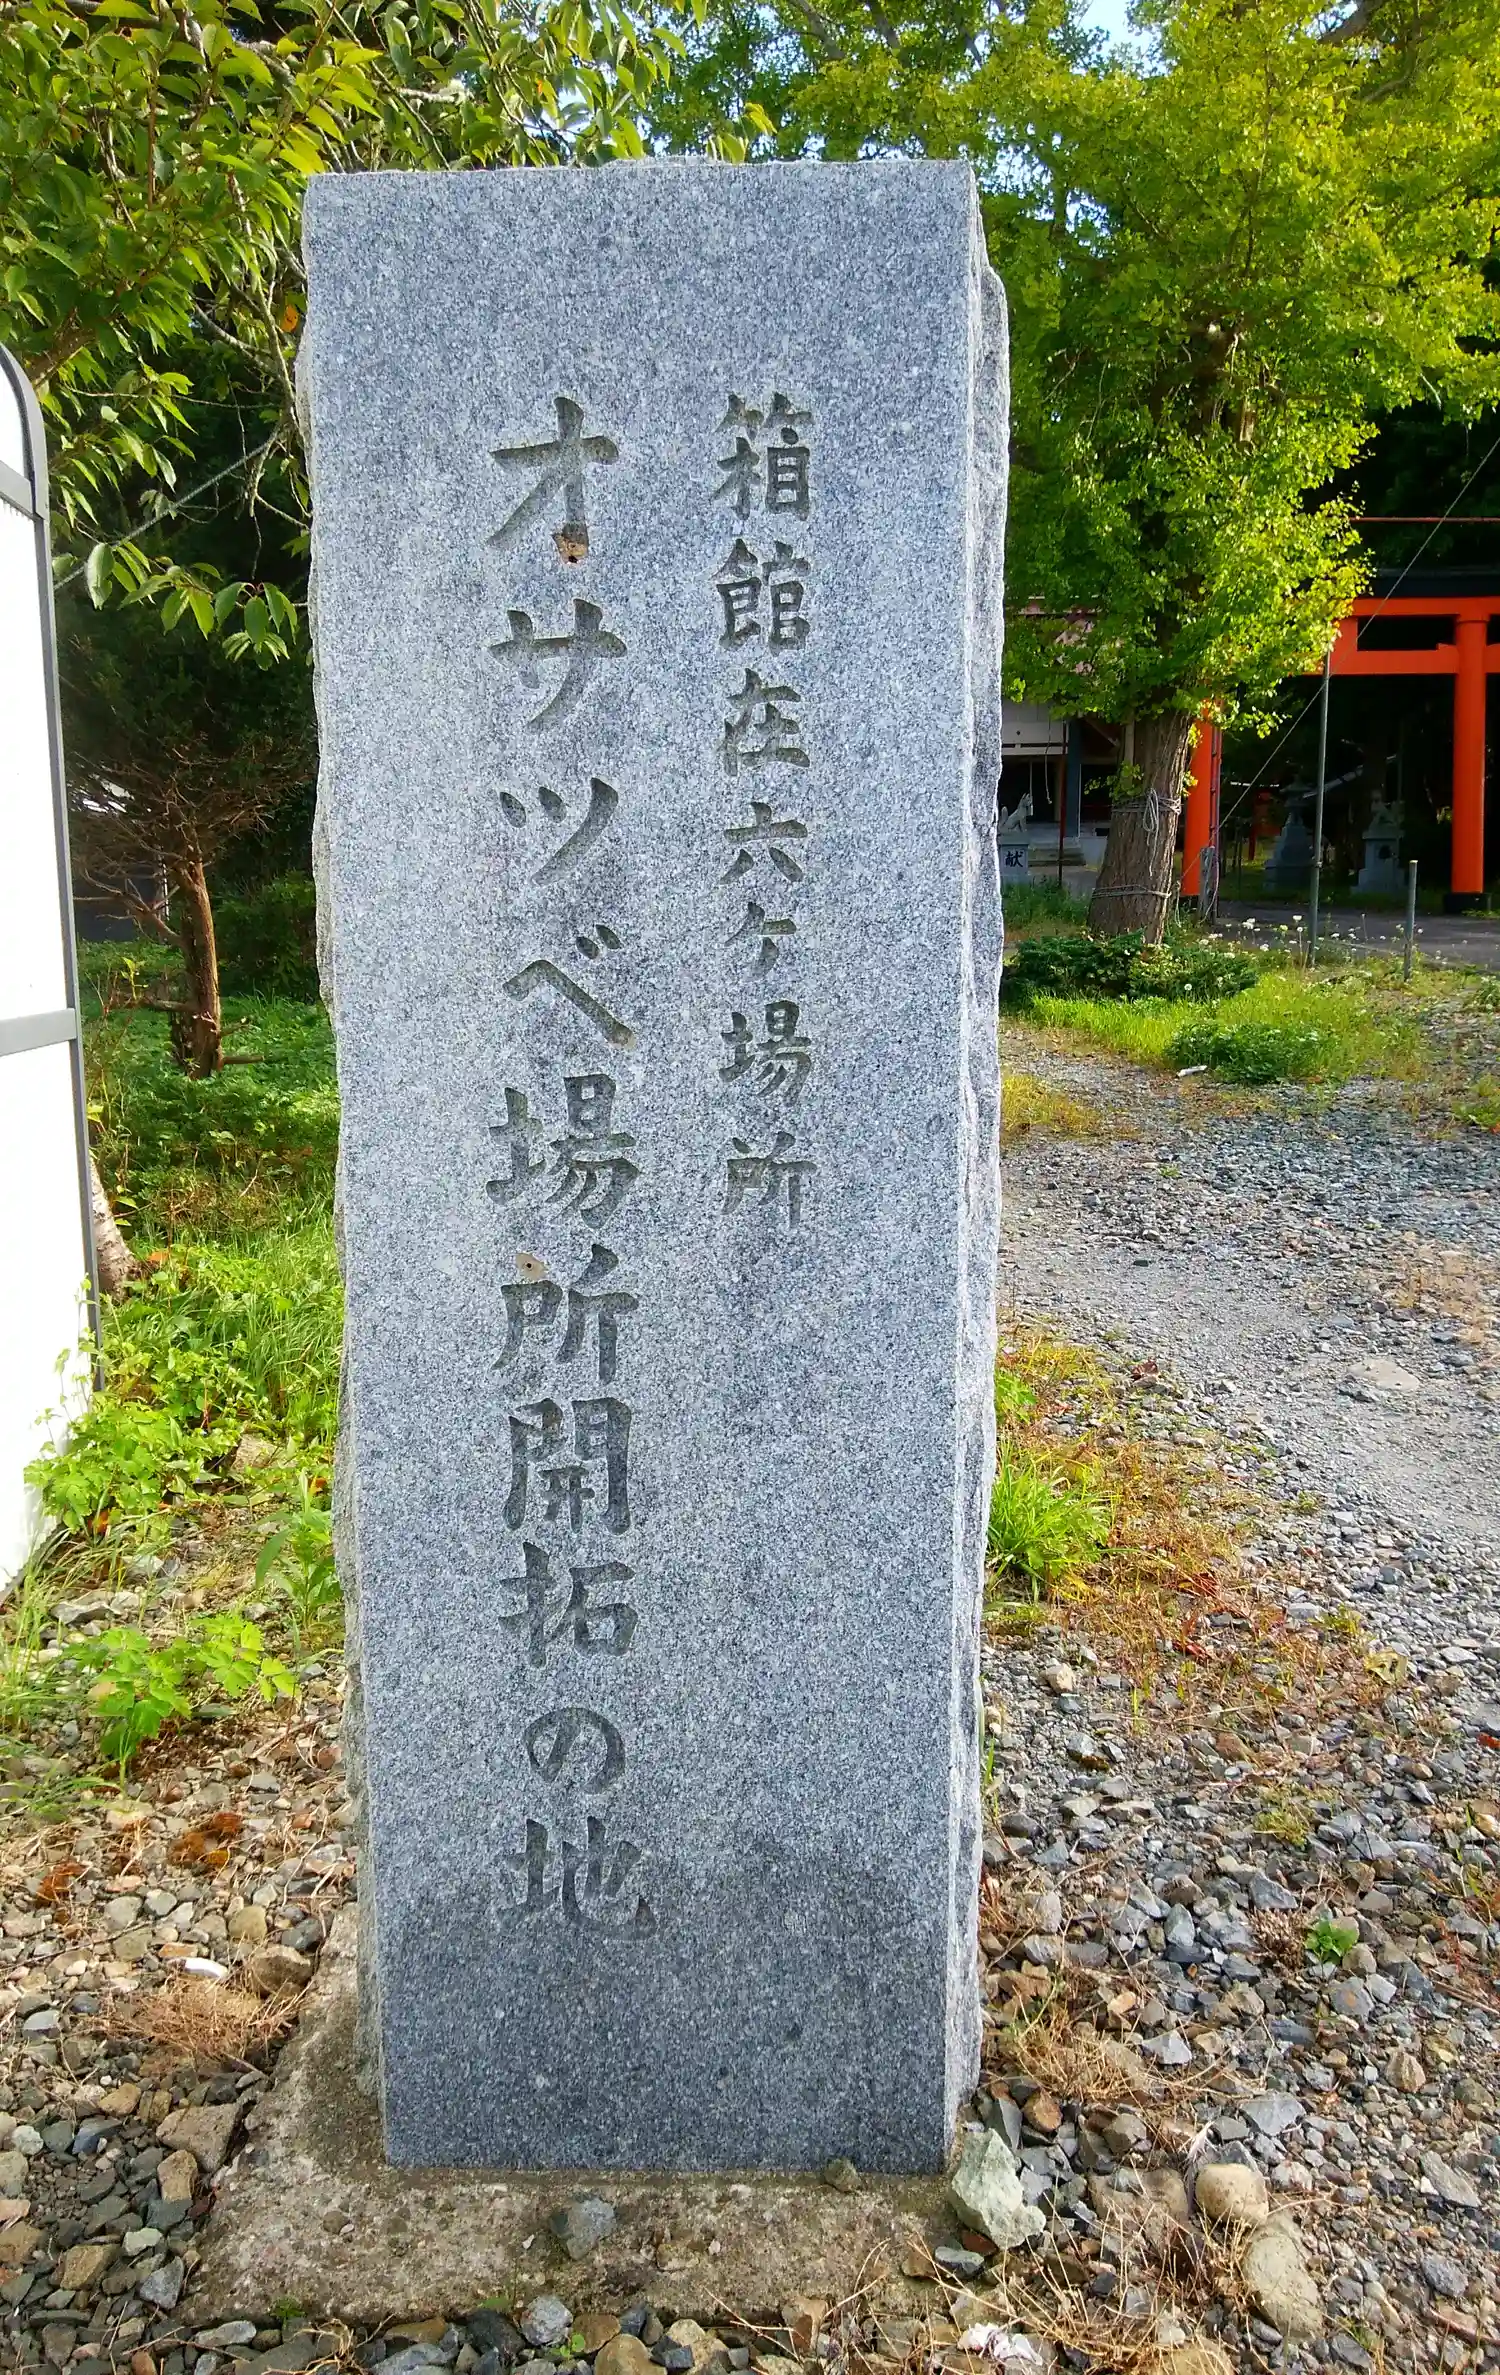 箱館在六ヶ場所
オサツベ場所開拓の地
献